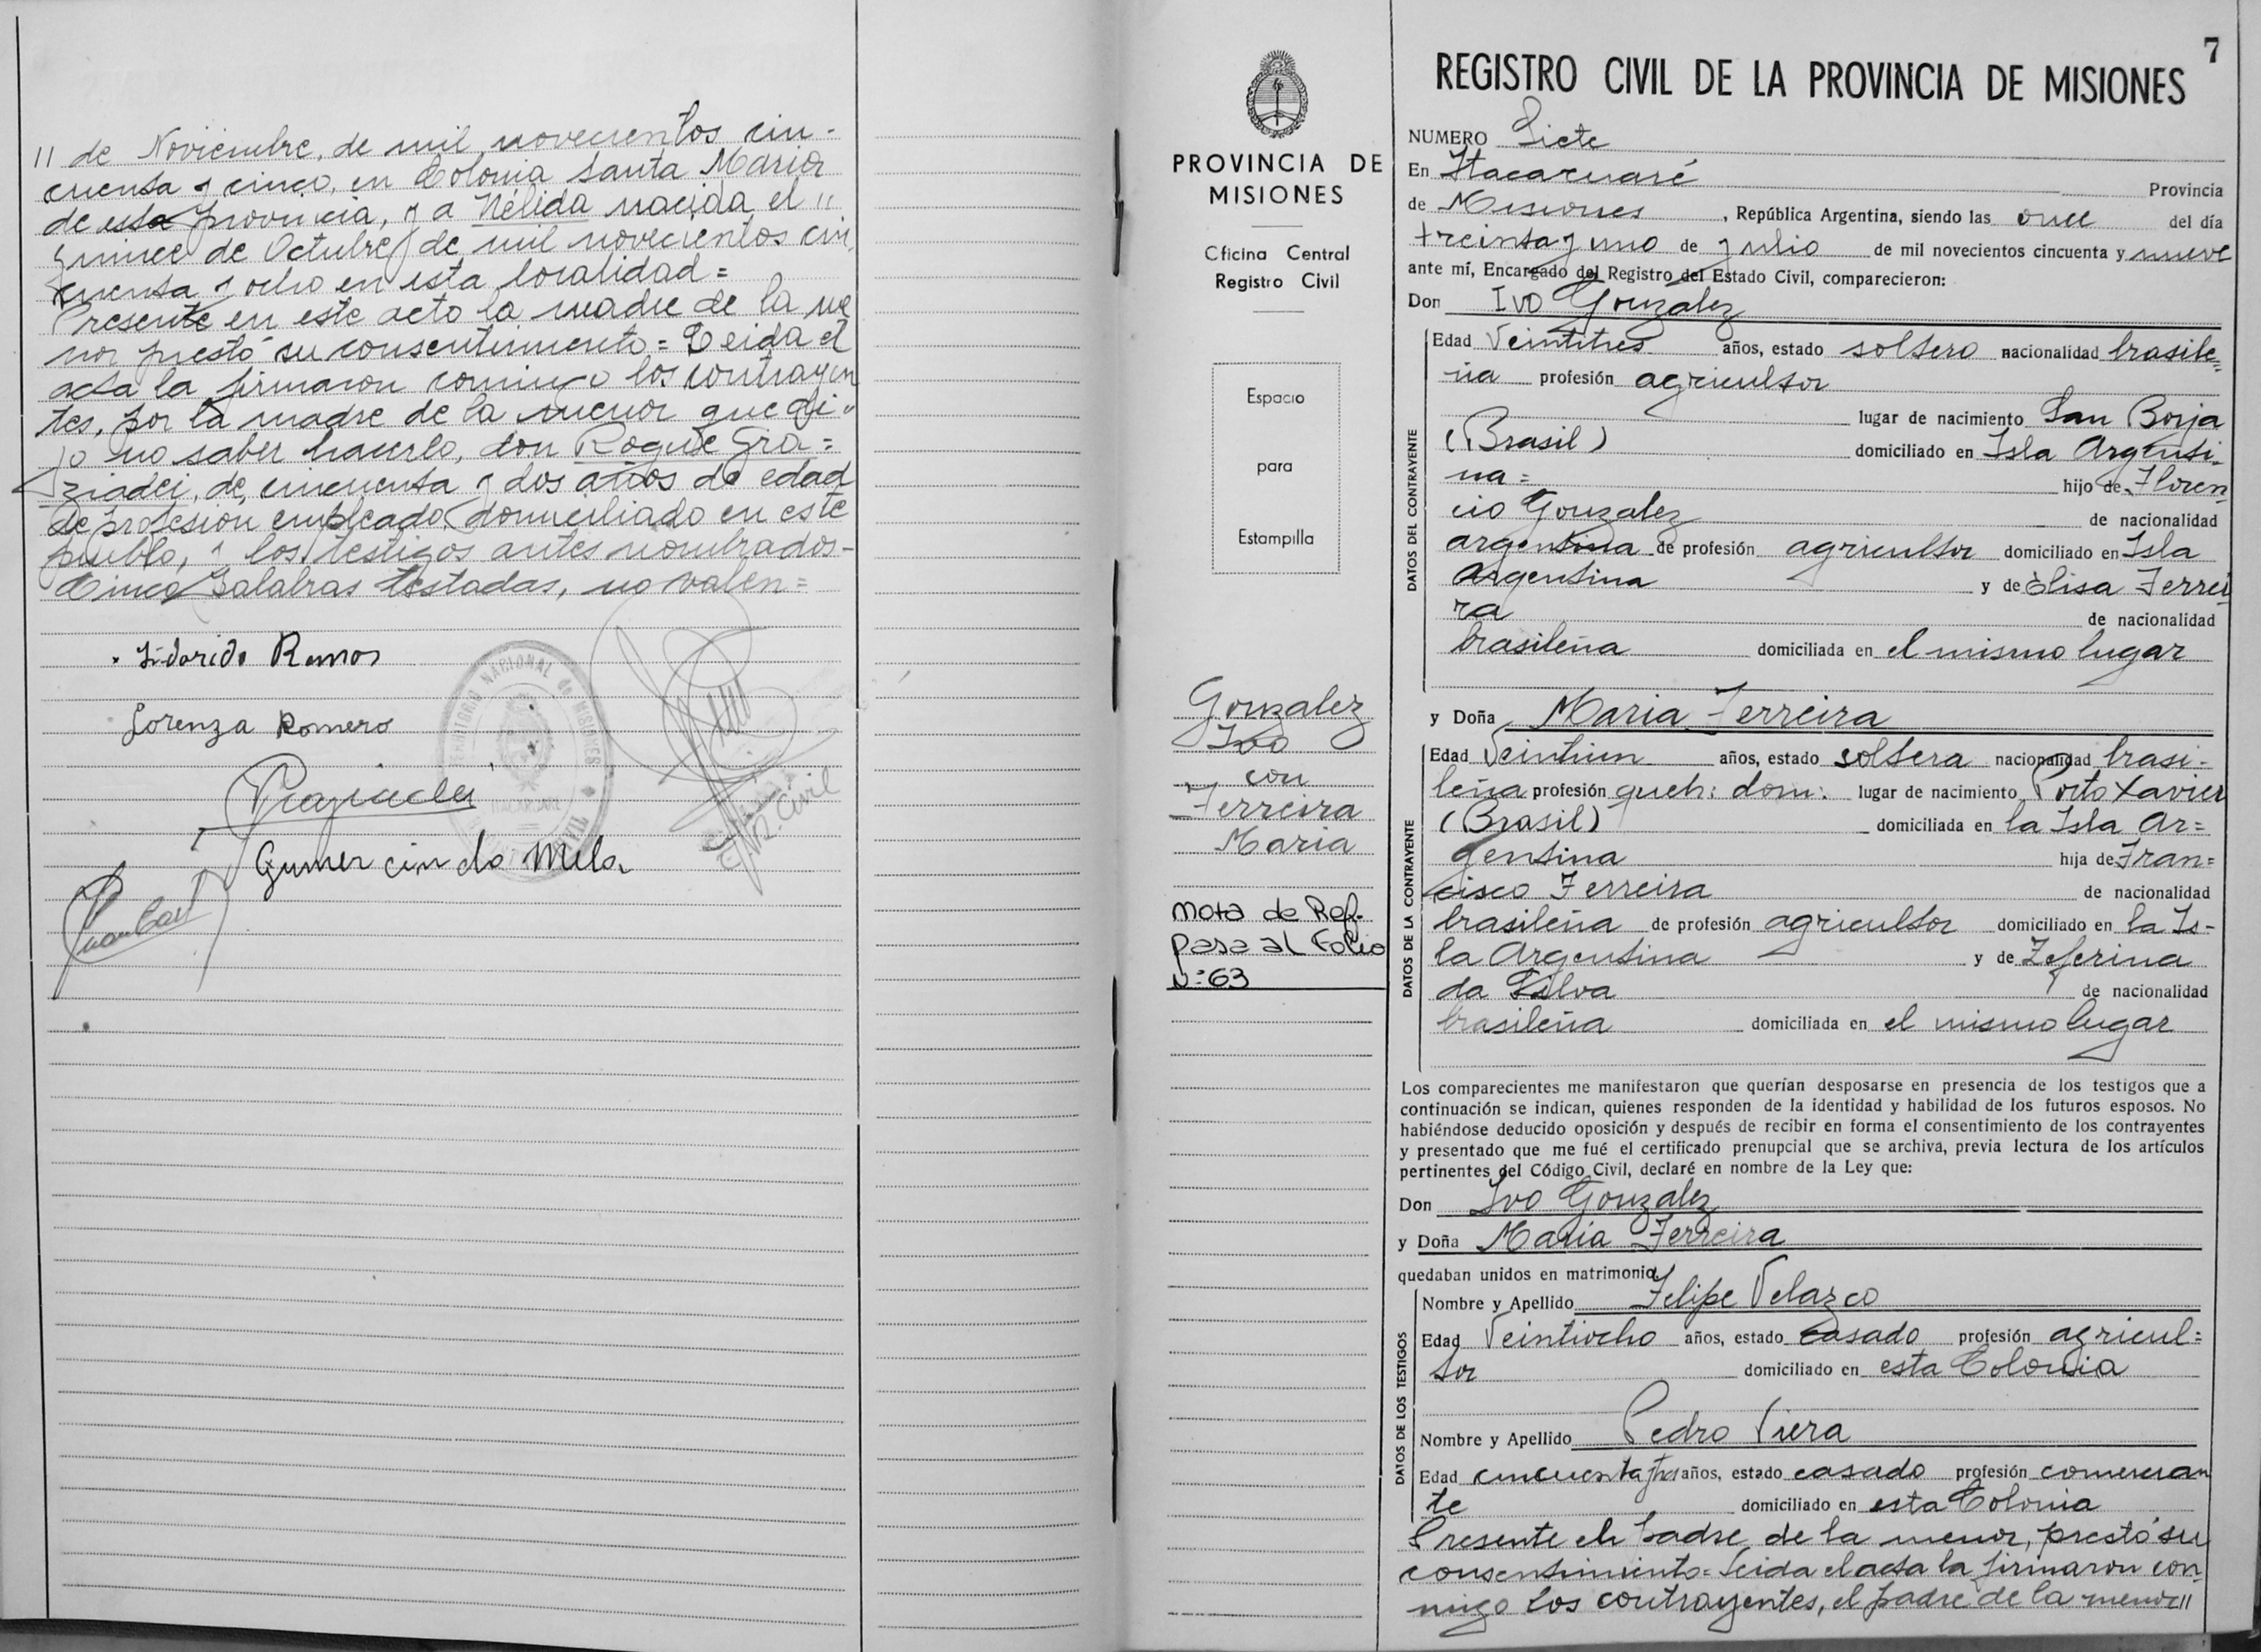 11 de Noviembre, de mil novecientos cin-
cuenta y cinco, en Colonia Santa Maria
de esta provincia, y a Nélida nacida el "
quince de Octubre de mil novecientos cin
cuenta y ocho en esta localidad =
Presente en este acto la madre de la me
nor prestó su consentimiento = Leida el
acta la firmaron conmigo los contrayen
tes, por la madre de la menor que di"
jo no saber hacerlo, don Roque Gra=
ziadei, de cincuenta y dos años de edad
de profesion empleado, domiciliado en este
pueblo, y los testigos antes nombrados-
Cinco palabras testadas, no valen=
Ramos
Lorenza Romero
TERRITORIO NACIONAL de MISIONES
ITACARUARE
R. Civil
Gumercindo Mela
PROVINCIA DE
MISIONES
Oficina Central
Registro Civil
Espacio
para
Estampilla
Gonzalez
Ivo
con
Ferreira
Maria
Nota de Ref.
pasa al Folio
N:63
7
REGISTRO CIVIL DE LA PROVINCIA DE MISIONES
NUMERO Siete
En Itacaruaré Provincia
de Misiones, República Argentina, siendo las once del día
treinta y uno de julio de mil novecientos cincuenta y nueve
ante mí, Encargado del Registro del Estado Civil, comparecieron:
Don Ivo Gonzalez
DATOS DEL CONTRAYENTE
Edad Veintitres años, estado soltero nacionalidad brasile=
ña profesión agricultor
lugar de nacimiento San Borja
(Brasil) domiciliado en Isla Argenti-
na = hijo de Floren
cio Gonzalez de nacionalidad
argentina de profesión agricultor domiciliado en Isla
Argentina y de Elisa Ferrei
ra de nacionalidad
brasileña domiciliada en el mismo lugar
y Doña Maria Ferreira
DATOS DE LA CONTRAYENTE
Edad Veintiun años, estado soltera nacionalidad brasi-
leña profesión queh: dom: lugar de nacimiento Porto Xavier
(Brasil) domiciliada en la Isla Ar=
gentina hija de Fran=
cisco Ferreira de nacionalidad
brasileña de profesión agricultor domiciliado en la Is-
la Argentina y de Zeferina
da Silva de nacionalidad
brasileña domiciliada en el mismo lugar
Los comparecientes me manifestaron que querían desposarse en presencia de los testigos que a
continuación se indican, quienes responden de la identidad y habilidad de los futuros esposos. No
habiéndose deducido oposición y después de recibir en forma el consentimiento de los contrayentes
y presentado que me fué el certificado prenupcial que se archiva, previa lectura de los artículos
pertinentes del Código Civil, declaré en nombre de la Ley que:
Don Ivo Gonzalez
y Doña Maria Ferreira
quedaban unidos en matrimonio.
DATOS DE LOS TESTIGOS
Nombre y Apellido Felipe Velazco
Edad Veintiocho años, estado casado profesión agricul=
tor domiciliado en esta Colonia
Nombre y Apellido Pedro Viera
Edad cincuenta y tres años, estado casado profesión comercian
te domiciliado en esta Colonia
Presente el padre de la menor, prestó su
consentimiento= Leida el acta la firmaron con
migo los contrayentes, el padre de la menor"